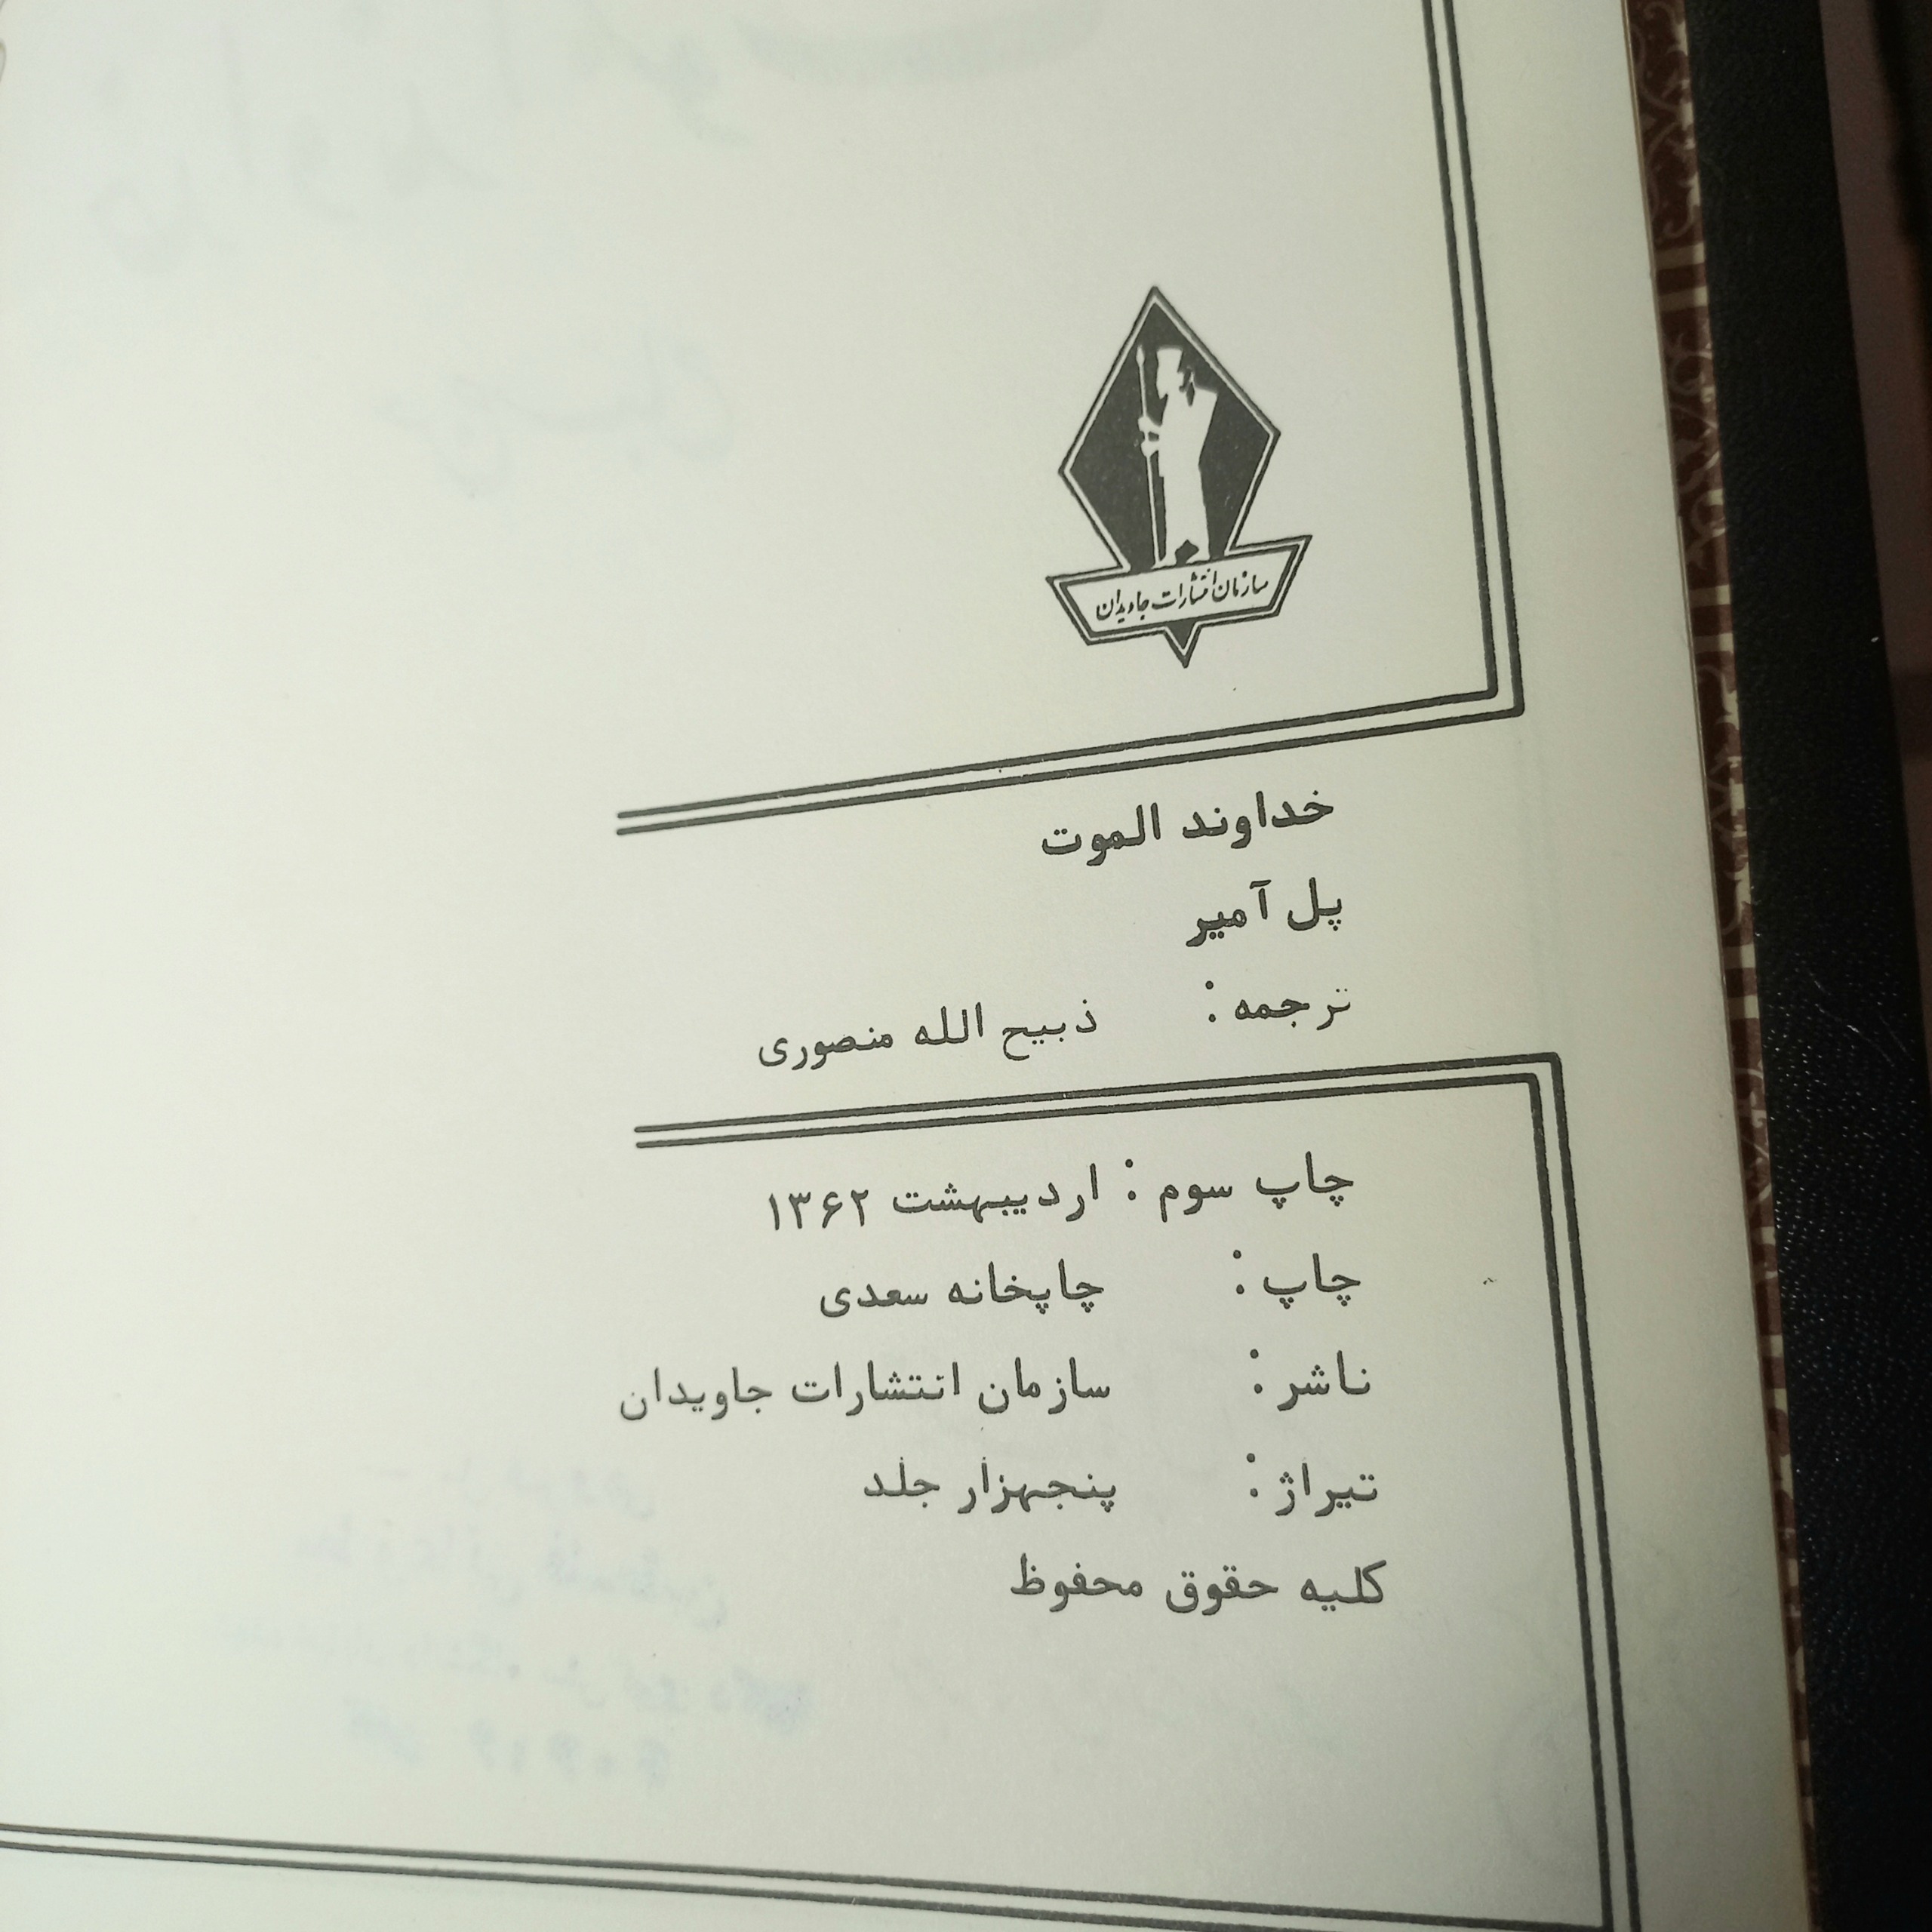 سازمان انتشارات جاویدان
خداوند الموت
پل آمیر
ترجمه : ذبیح الله منصوری
چاپ سوم : اردیبهشت ۱۳۶۲
چاپ : چاپخانه سعدی
ناشر : سازمان انتشارات جاویدان
تیراژ : پنجهزار جلد
کلیه حقوق محفوظ